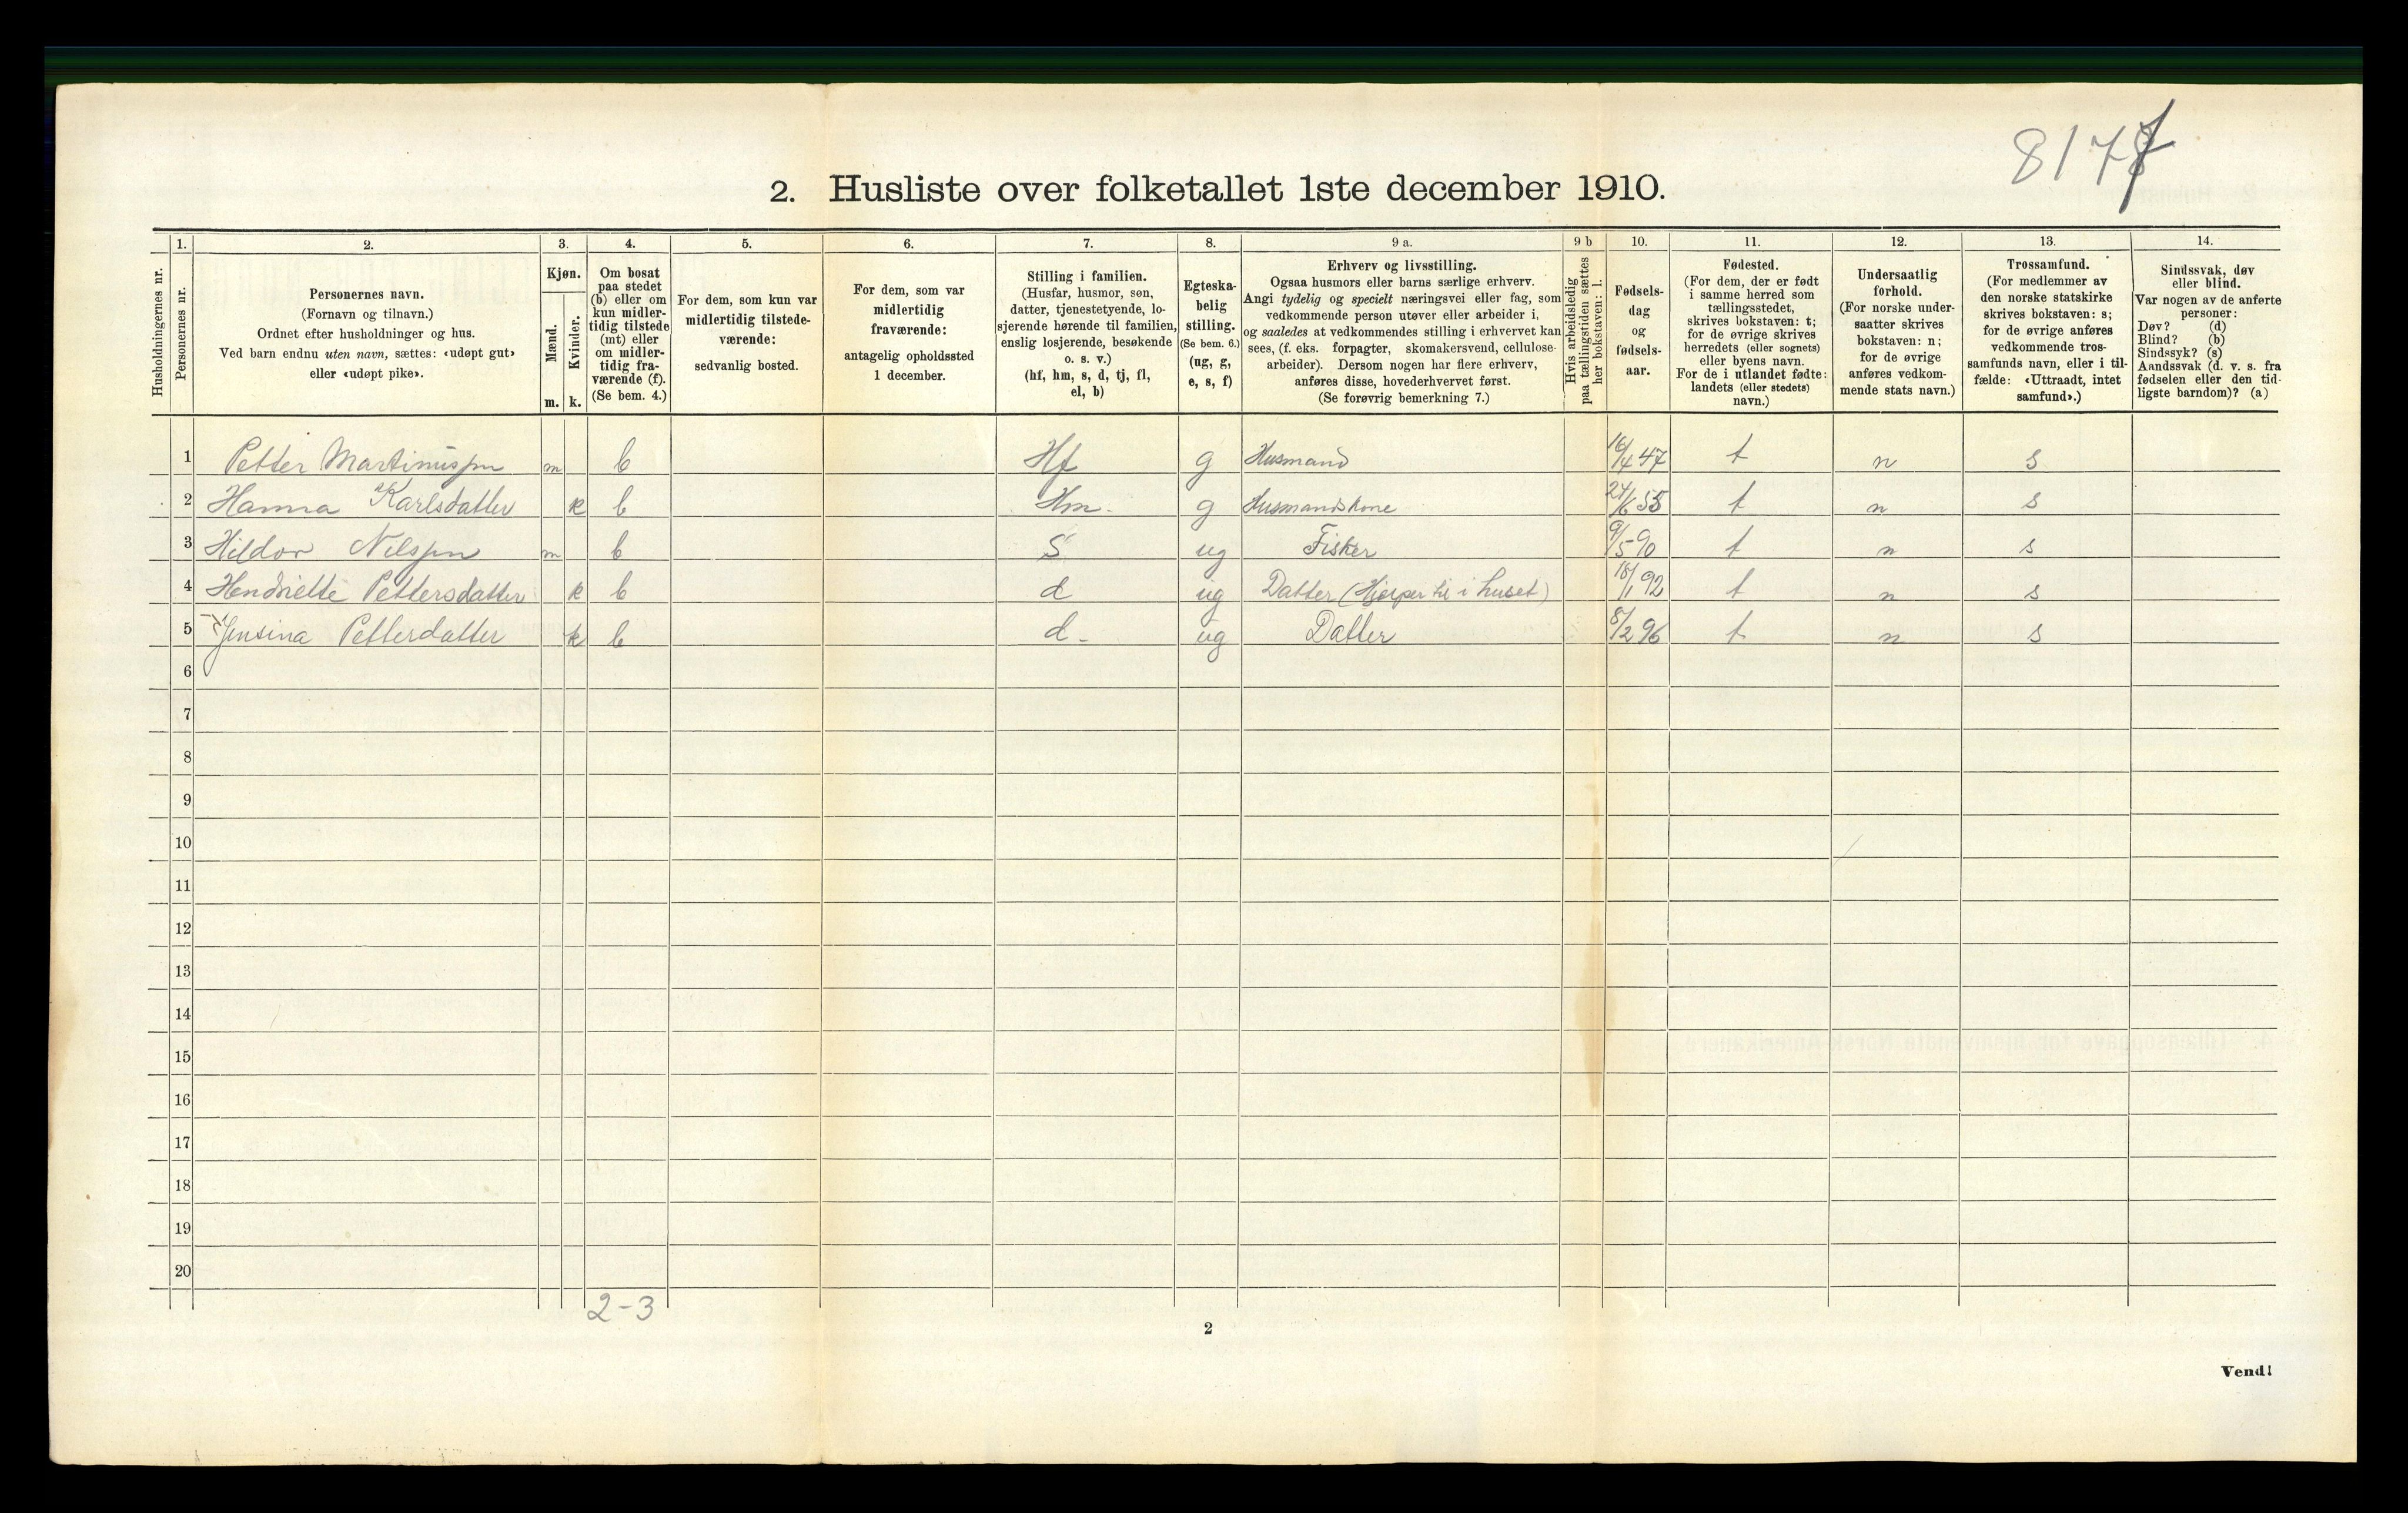 8177
2. Husliste over folketallet 1ste december 1910.
Husholdningernes nr.
1. Personernes nr.
2. Personernes navn.
(Fornavn og tilnavn.)
Ordnet efter husholdninger og hus.
Ved barn endnu uten navn, sættes: «udøpt gut»
eller «udøpt pike».
3. Kjøn.
Mænd. m.
Kvinder. k.
4. Om bosat
paa stedet
(b) eller om
kun midler-
tidig tilstede
(mt) eller
om midler-
tidig fra-
værende (f).
(Se bem. 4.)
5. For dem, som kun var
midlertidig tilstede-
værende:
sedvanlig bosted.
6. For dem, som var
midlertidig
fraværende:
antagelig opholdssted
1 december.
7. Stilling i familien.
(Husfar, husmor, søn,
datter, tjenestetyende, lo-
sjerende hørende til familien,
enslig losjerende, besøkende
o. s. v.)
(hf, hm, s, d, tj, fl,
el, b)
8. Egteska-
belig
stilling.
(Se bem. 6.)
(ug, g,
e, s, f)
9 a. Erhverv og livsstilling.
Ogsaa husmors eller barns særlige erhverv.
Angi tydelig og specielt næringsvei eller fag, som
vedkommende person utøver eller arbeider i,
og saaledes at vedkommendes stilling i erhvervet kan
sees, (f. eks. forpagter, skomakersvend, cellulose-
arbeider). Dersom nogen har flere erhverv,
anføres disse, hovederhvervet først.
(Se forøvrig bemerkning 7.)
9 b Hvis arbeidsledig
paa tællingstiden sættes
her bokstaven: l.
10. Fødsels-
dag
og
fødsels-
aar.
11. Fødested.
(For dem, der er født
i samme herred som
tællingsstedet,
skrives bokstaven: t;
for de øvrige skrives
herredets (eller sognets)
eller byens navn.
For de i utlandet fødte:
landets (eller stedets)
navn.)
12. Undersaatlig
forhold.
(For norske under-
saatter skrives
bokstaven: n;
for de øvrige
anføres vedkom-
mende stats navn.)
13. Trossamfund.
(For medlemmer av
den norske statskirke
skrives bokstaven: s;
for de øvrige anføres
vedkommende tros-
samfunds navn, eller i til-
fælde: «Uttraadt, intet
samfund».)
14. Sindssvak, døv
eller blind.
Var nogen av de anførte
personer:
Døv? (d)
Blind? (b)
Sindssyk? (s)
Aandssvak (d. v. s. fra
fødselen eller den tid-
ligste barndom)? (a)
1 Petter Martinussen m b Hf g Husmand 16/4 47 t n s
2 Hanna Karlsdatter k b Hm. g Husmandskone 24/6 55 t n s
3 Hildor Nilssen m b S ug Fisker 9/5 90 t n s
4 Hendriette Pettersdatter k b d ug Datter (Hjelper til i huset) 18/1 92 t n s
5 Jensina Petterdatter k b d- ug Datter 8/2 96 t n s
6
7
8
9
10
11
12
13
14
15
16
17
18
19
20
2-3
2
Vend!